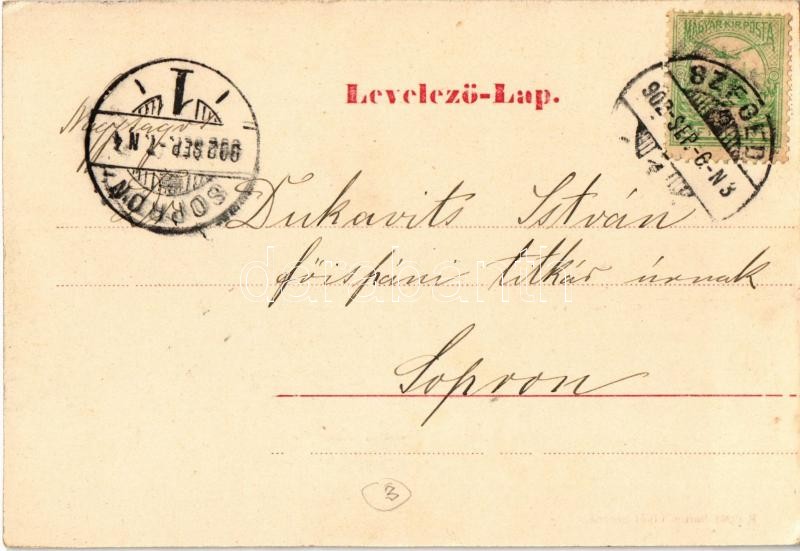 MAGYAR KIR. POSTA
Levelező-Lap.
SZEGED
902 SEP. -6. N 3
1
902 SEP. -7. N 4
SOPRON
Dukavits István
főispáni titkár úrnak
Sopron
darabanth
3